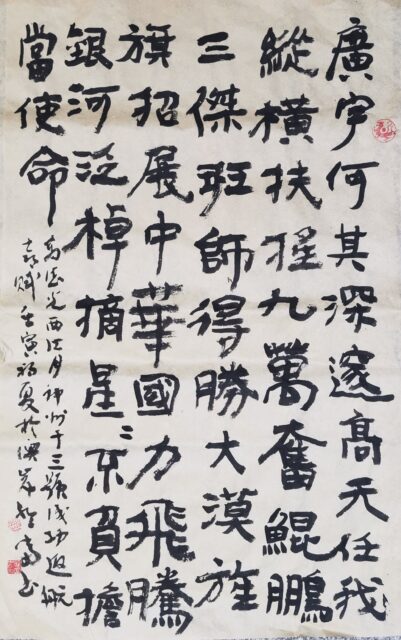 廣宇何其深邃高天任我
縱橫扶搖九萬奮鯤鵬
三傑班師得勝大漠旌
旗招展中華國力飛騰
銀河泛棹摘星〻不負擔
當使命
西江月神州十三號成功返航
喜賦壬寅初夏於